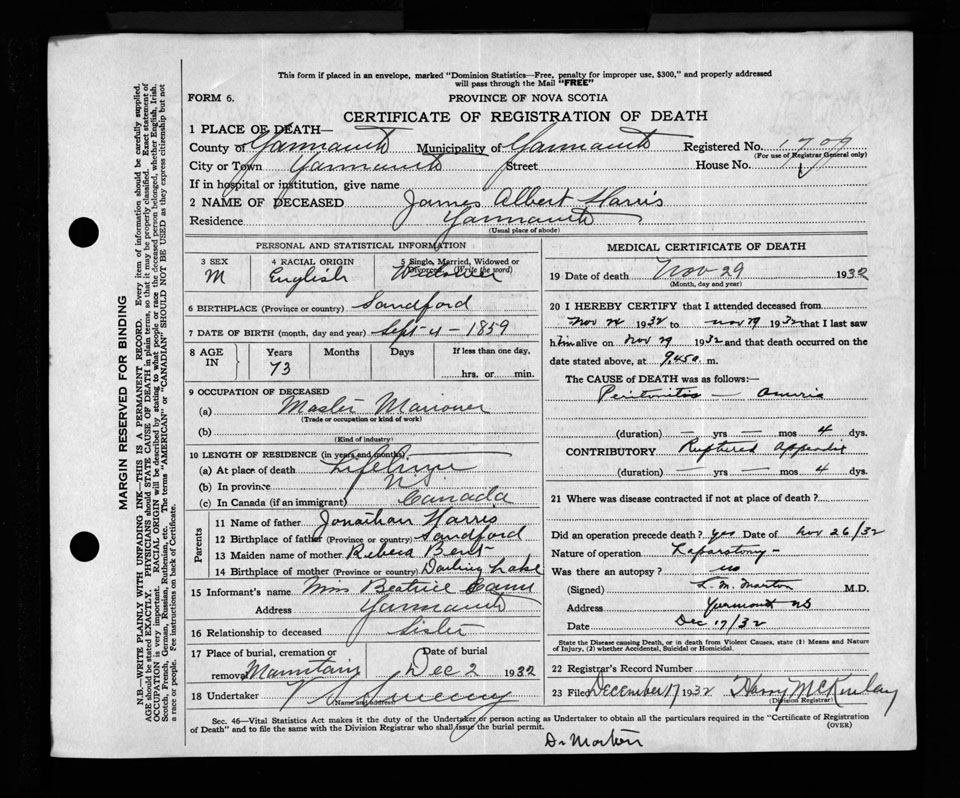 This form if placed in an envelope, marked "Dominion Statistics—Free, penalty for improper use, $300," and properly addressed
will pass through the Mail "FREE"
FORM 6.
PROVINCE OF NOVA SCOTIA
CERTIFICATE OF REGISTRATION OF DEATH
1 PLACE OF DEATH—
County of Yarmouth Municipality of Yarmouth Registered No. 1709
(For use of Registrar General only)
City or Town Yarmouth Street House No.
If in hospital or institution, give name
2 NAME OF DECEASED James Albert Harris
Residence Yarmouth
(Usual place of abode)
PERSONAL AND STATISTICAL INFORMATION
3 SEX 4 RACIAL ORIGIN 5 Single, Married, Widowed or
Divorced (Write the word)
M English Widower
6 BIRTHPLACE (Province or country) Sandford
7 DATE OF BIRTH (month, day and year) Sept 4 - 1859
8 AGE IN Years Months Days If less than one day,
73 hrs. or min.
9 OCCUPATION OF DECEASED
(a) Master Mariner
(Trade or occupation or kind of work)
(b)
(Kind of industry)
10 LENGTH OF RESIDENCE (in years and months)
(a) At place of death Lifetime
(b) In province NS
(c) In Canada (if an immigrant) Canada
Parents
11 Name of father Jonathan Harris
12 Birthplace of father (Province or country) Sandford
13 Maiden name of mother Rebeca
14 Birthplace of mother (Province or country) Darling Lake
15 Informant's name Beatrice
Address Yarmouth
16 Relationship to deceased Sister
17 Place of burial, cremation or Date of burial
removal Mountain Dec 2 1932
18 Undertaker V S Sweeny
(Name and address)
MEDICAL CERTIFICATE OF DEATH
19 Date of death Nov 29 1932
(Month, day and year)
20 I HEREBY CERTIFY that I attended deceased from
Nov 1932 to Nov 29 1932 that I last saw
him alive on Nov 29 1932 and that death occurred on the
date stated above, at m.
The CAUSE OF DEATH was as follows:—
Peritonitis —
(duration) — yrs — mos 4 dys.
CONTRIBUTORY Ruptured Appendix
(duration) — yrs — mos 4 dys.
21 Where was disease contracted if not at place of death?
Did an operation precede death? yes Date of Nov 26/32
Nature of operation Laparotomy -
Was there an autopsy? no
(Signed) L. M. Morton M.D.
Address Yarmouth NS
Date Dec 17/32
State the Disease causing Death, or in death from Violent Causes, state (1) Means and Nature
of Injury, (2) whether Accidental, Suicidal or Homicidal.
22 Registrar's Record Number
23 Filed December 17 1932 Harry McKinlay
(Division Registrar)
Sec. 46—Vital Statistics Act makes it the duty of the Undertaker or person acting as Undertaker to obtain all the particulars required in the "Certificate of Registration
of Death" and to file the same with the Division Registrar who shall issue the burial permit. (OVER)
Dr Morton
MARGIN RESERVED FOR BINDING
N.B.—WRITE PLAINLY WITH UNFADING INK—THIS IS A PERMANENT RECORD. Every item of information should be carefully supplied.
AGE should be stated EXACTLY. PHYSICIANS should STATE CAUSE OF DEATH in plain terms, so that it may be properly classified. Exact statement of
OCCUPATION is very important. RACIAL ORIGIN will be described by stating to what people or race the deceased person belonged, whether English, Irish,
Scotch, French, German, Russian, Ruthenian, etc. The terms "AMERICAN" or "CANADIAN" SHOULD NOT BE USED as they express citizenship but not
a race or people. See instructions on back of Certificate.